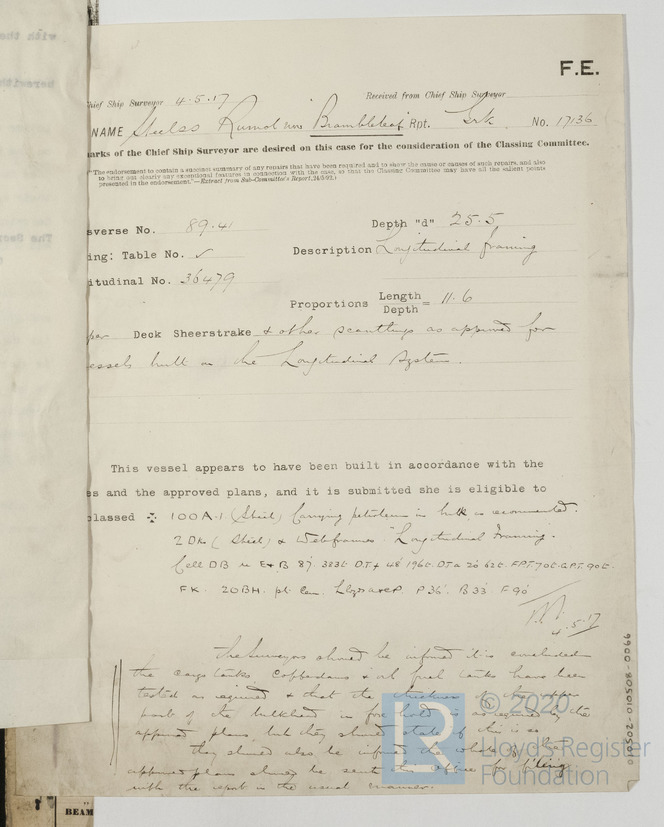 F.E.
Chief Ship Surveyor 4.5.17 Received from Chief Ship Surveyor
NAME Rumol now Brambleleaf Rpt. No. 17136
marks of the Chief Ship Surveyor are desired on this case for the consideration of the Classing Committee.
"The endorsement to contain a succinct summary of any repairs that have been required and to show the cause or causes of such repairs, and also
to bring out clearly any exceptional features in connection with the case, so that the Classing Committee may have all the salient points
presented in the endorsement."—Extract from Sub-Committee's Report,
sverse No. 89.41 Depth "d" 25.5
ing: Table No. ✓ Description Longitudinal framing
itudinal No. 36479
Proportions Length/Depth = 11.6
per Deck Sheerstrake & other scantlings as approved for
essels built on the Longitudinal System.
This vessel appears to have been built in accordance with the
es and the approved plans, and it is submitted she is eligible to
classed ✠ 100A.1 (Steel) Carrying petroleum in bulk as recommended.
2 Dks (Steel) & Web frames. Longitudinal Framing.
Cell DB u E&B 87' 383t. D.T.f 48' 196t. D.T.a 20' 62t. F.P.T. 70t. A.P.T. 90t.
FK. 20BH. pt Cem. P 36' B 33' F 90'
4.5.17
The Surveyors should be informed it is concluded
the cargo tanks, Cofferdams & oil fuel tanks have been
tested as required & that the thickness of the upper
part of the bulkhead in fore hold is as required by the
approved plans, but they should state if this is so
They should also be informed the whole of the
approved plans should be sent to this office for filing
with the report in the usual manner.
010502-010508-0066
© 2020
LR
Lloyd's Register
Foundation
with the
herewith
The Secr
BEAM